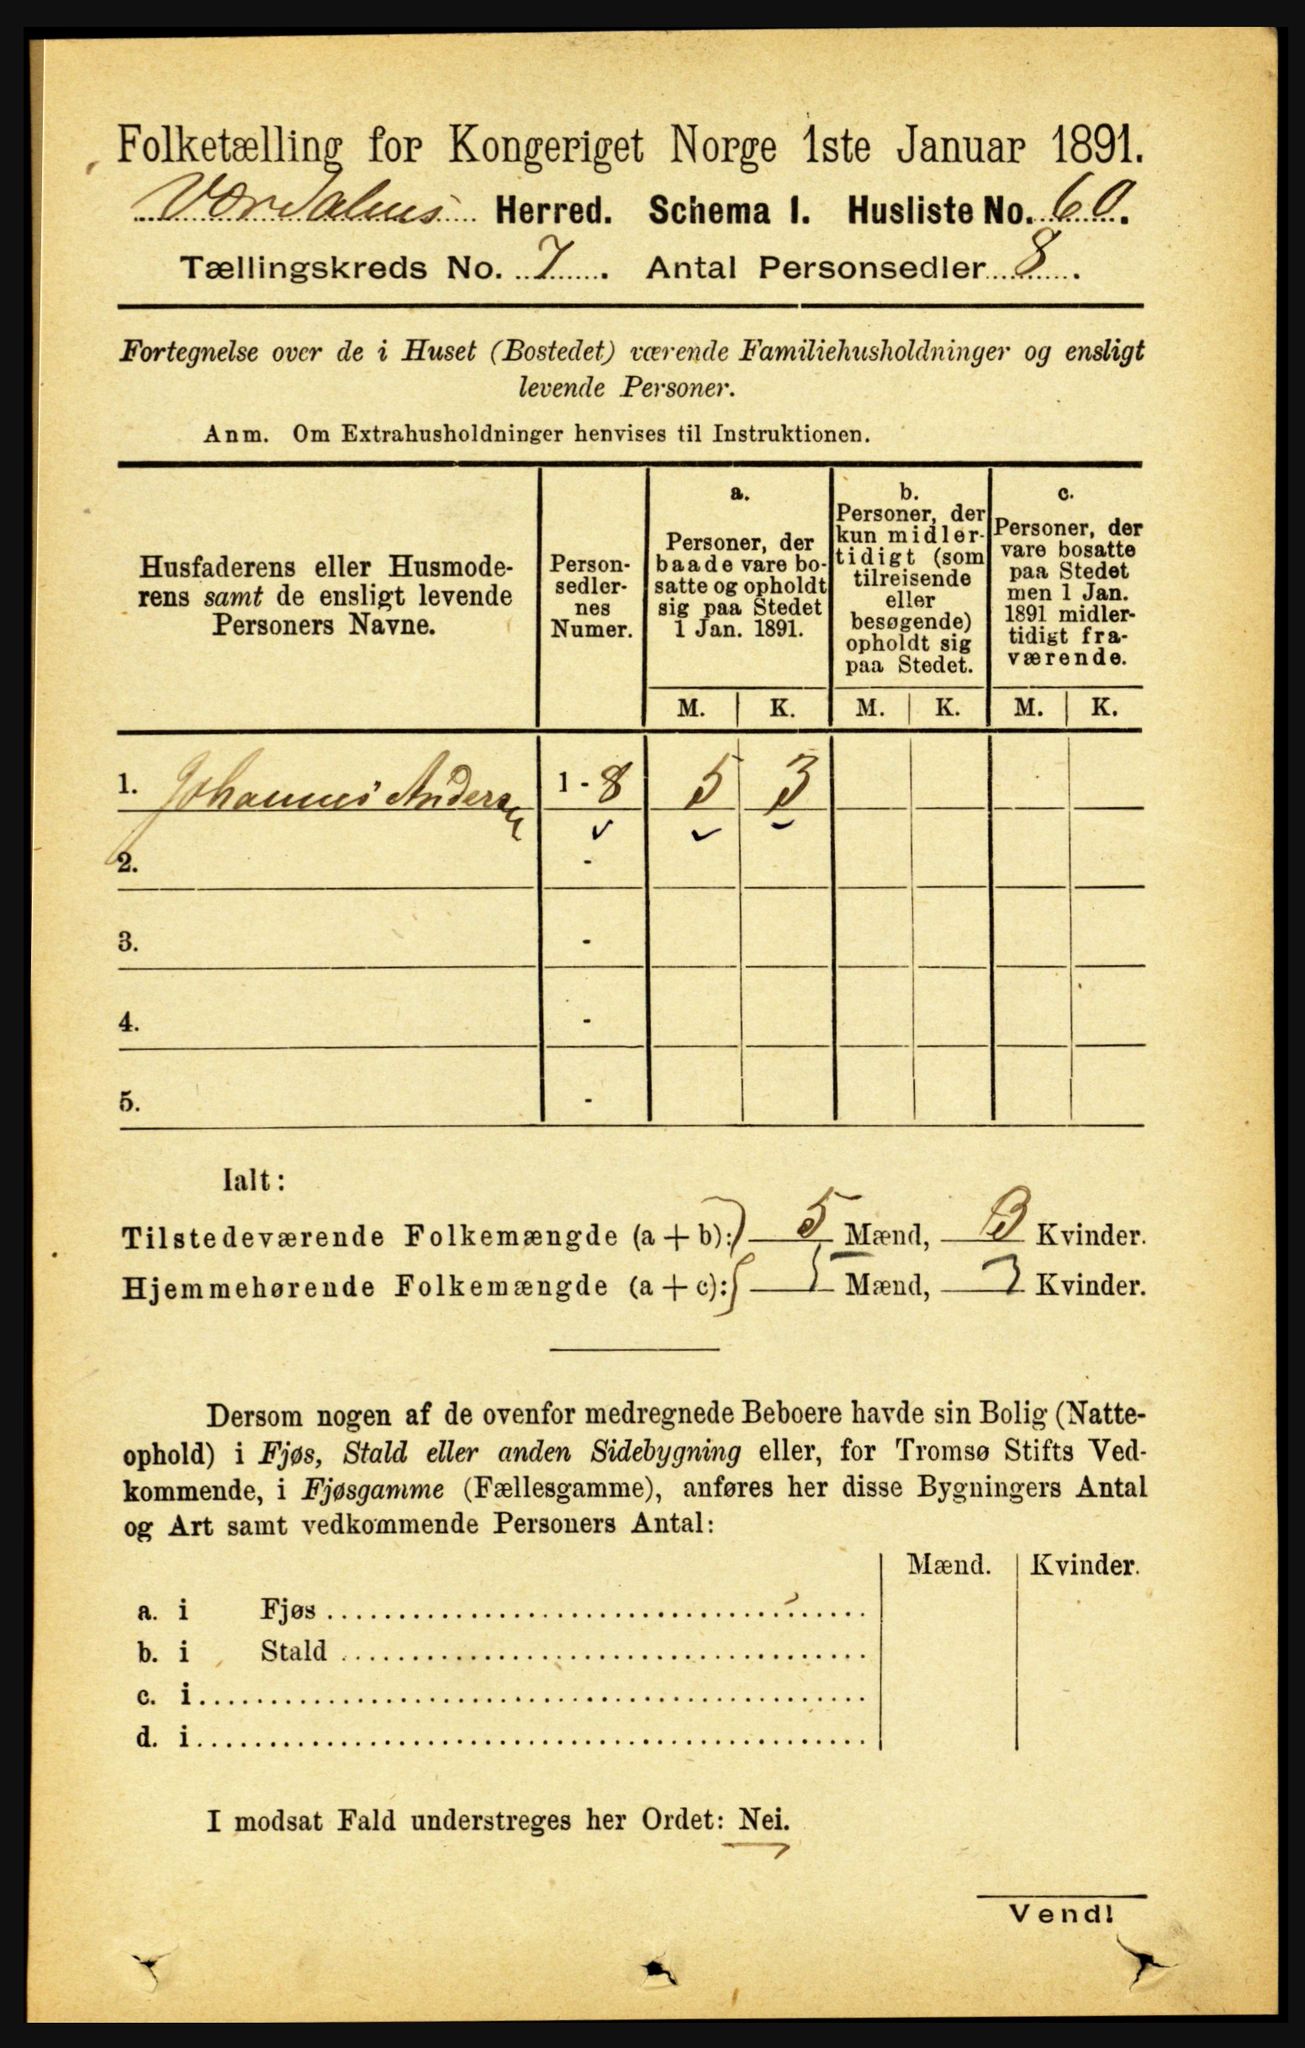 Folketælling for Kongeriget Norge 1ste Januar 1891.
Værdalens Herred. Schema I. Husliste No. 60.
Tællingskreds No. 7. Antal Personsedler 8.
Fortegnelse over de i Huset (Bostedet) værende Familiehusholdninger og ensligt
levende Personer.
Anm. Om Extrahusholdninger henvises til Instruktionen.
Husfaderens eller Husmode-
rens samt de ensligt levende
Personers Navne.
Person-
sedler-
nes
Numer.
a.
Personer, der
baade vare bo-
satte og opholdt
sig paa Stedet
1 Jan. 1891.
b.
Personer, der
kun midler-
tidigt (som
tilreisende
eller
besøgende)
opholdt sig
paa Stedet.
c.
Personer, der
vare bosatte
paa Stedet
men 1 Jan.
1891 midler-
tidigt fra-
værende.
M. K. M. K. M. K.
1. Johannes Andersen 1 - 8 5 3
2. -
3. -
4. -
5. -
Ialt:
Tilstedeværende Folkemængde (a + b): 5 Mænd, 3 Kvinder.
Hjemmehørende Folkemængde (a + c): 5 Mænd, 3 Kvinder.
Dersom nogen af de ovenfor medregnede Beboere havde sin Bolig (Natte-
ophold) i Fjøs, Stald eller anden Sidebygning eller, for Tromsø Stifts Ved-
kommende, i Fjøsgamme (Fællesgamme), anføres her disse Bygningers Antal
og Art samt vedkommende Personers Antal:
Mænd. Kvinder.
a. i Fjøs
b. i Stald
c. i
d. i
I modsat Fald understreges her Ordet: Nei.
Vend!